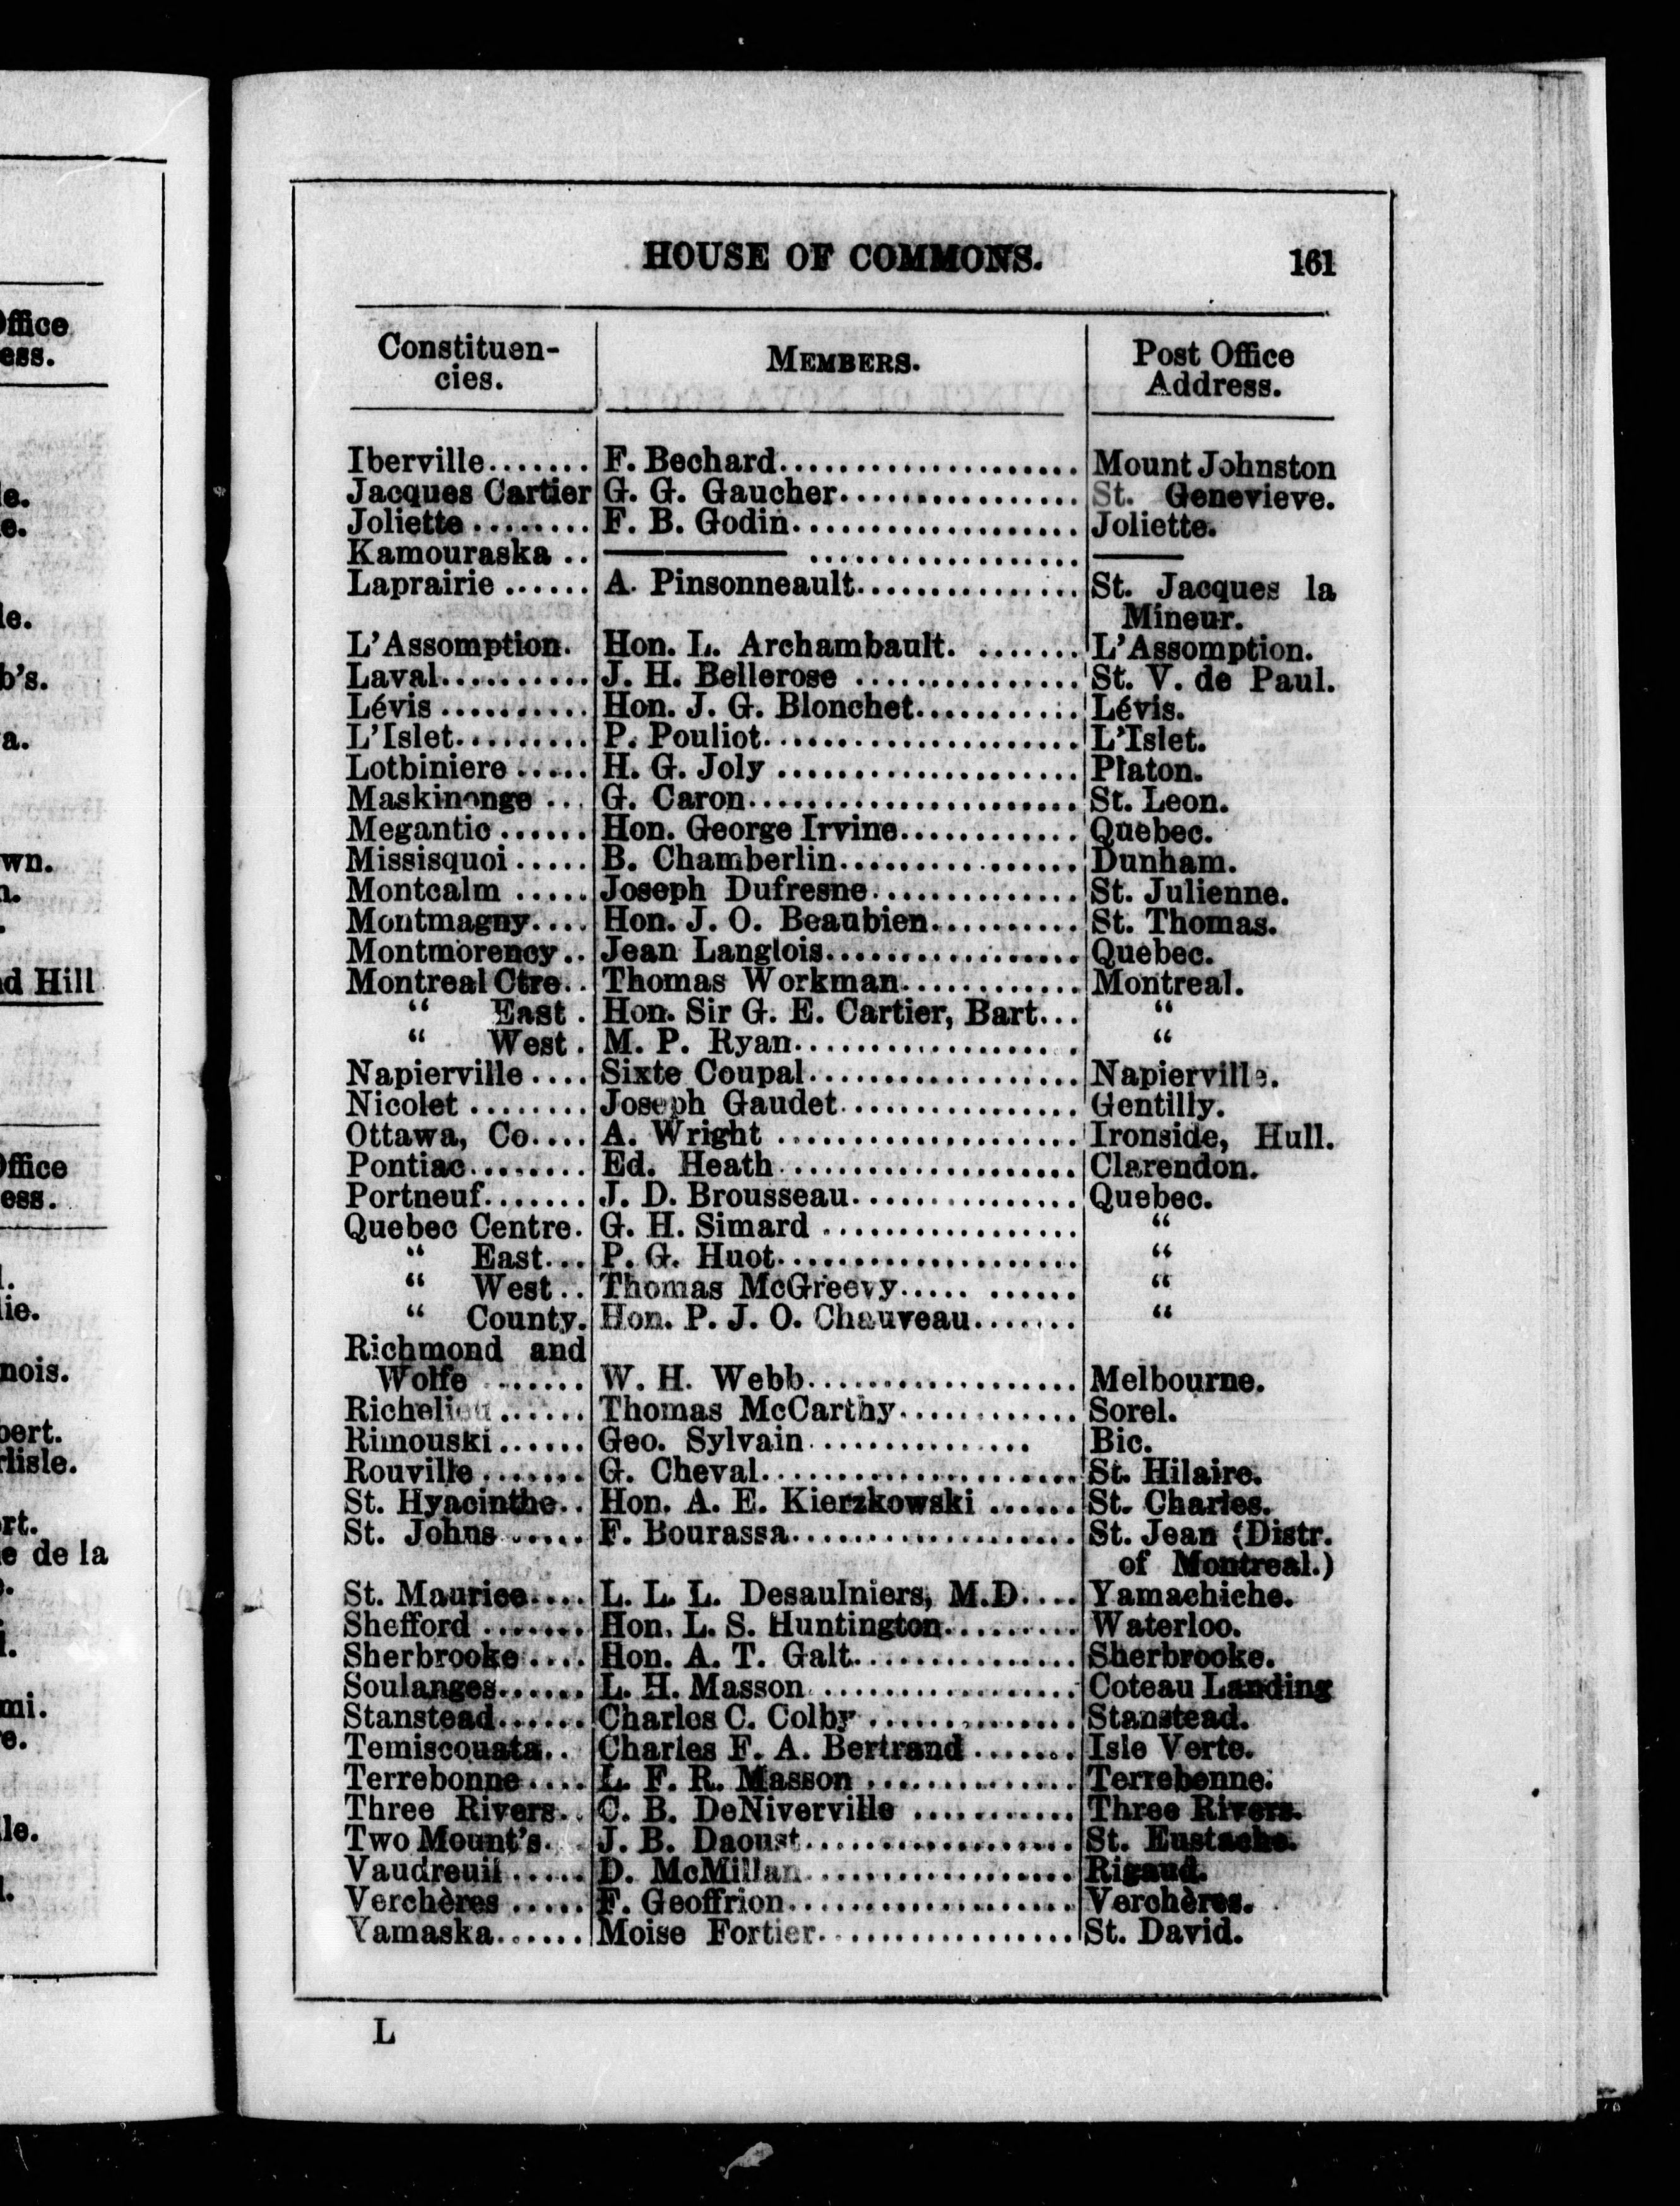 HOUSE OF COMMONS. 161
Constituen-
cies.
MEMBERS.
Post Office
Address.
Iberville....... F. Bechard..................... Mount Johnston
Jacques Cartier G. G. Gaucher................. St. Genevieve.
Joliette ........ F. B. Godin.................... Joliette.
Kamouraska .. ——— ................... ———
Laprairie ...... A. Pinsonneault................ St. Jacques la
Mineur.
L'Assomption. Hon. L. Archambault. ........ L'Assomption.
Laval.......... J. H. Bellerose ................ St. V. de Paul.
Lévis .......... Hon. J. G. Blonchet............ Lévis.
L'Islet......... P. Pouliot...................... L'Islet.
Lotbiniere ..... H. G. Joly ..................... Platon.
Maskinonge ... G. Caron....................... St. Leon.
Megantic ...... Hon. George Irvine............. Quebec.
Missisquoi ..... B. Chamberlin................. Dunham.
Montcalm ..... Joseph Dufresne............... St. Julienne.
Montmagny.... Hon. J. O. Beaubien........... St. Thomas.
Montmorency.. Jean Langlois.................. Quebec.
Montreal Ctre.. Thomas Workman............. Montreal.
“ East . Hon. Sir G. E. Cartier, Bart... “
“ West . M. P. Ryan.................... “
Napierville.... Sixte Coupal................... Napierville.
Nicolet ........ Joseph Gaudet................. Gentilly.
Ottawa, Co.... A. Wright ..................... Ironside, Hull.
Pontiac........ Ed. Heath..................... Clarendon.
Portneuf....... J. D. Brousseau................ Quebec.
Quebec Centre. G. H. Simard .................. “
“ East... P. G. Huot..................... “
“ West.. Thomas McGreevy..... ...... “
“ County. Hon. P. J. O. Chauveau....... “
Richmond and
Wolfe ....... W. H. Webb................... Melbourne.
Richelieu ...... Thomas McCarthy............. Sorel.
Rimouski ...... Geo. Sylvain................ Bic.
Rouville ....... G. Cheval...................... St. Hilaire.
St. Hyacinthe.. Hon. A. E. Kierzkowski ...... St. Charles.
St. Johns ..... F. Bourassa.................... St. Jean (Distr.
of Montreal.)
St. Maurice.... L. L. L. Desaulniers, M.D.... Yamachiche.
Shefford ....... Hon. L. S. Huntington.......... Waterloo.
Sherbrooke .... Hon. A. T. Galt................ Sherbrooke.
Soulanges...... L. H. Masson .................. Coteau Landing
Stanstead...... Charles C. Colby ............... Stanstead.
Temiscouata.. Charles F. A. Bertrand ....... Isle Verte.
Terrebonne.... L. F. R. Masson ............... Terrebonne.
Three Rivers.. C. B. DeNiverville ............ Three Rivers.
Two Mount's.. J. B. Daoust................... St. Eustache.
Vaudreuil ..... D. McMillan................... Rigaud.
Verchères ..... F. Geoffrion.................... Verchères.
Yamaska...... Moise Fortier.................. St. David.
L